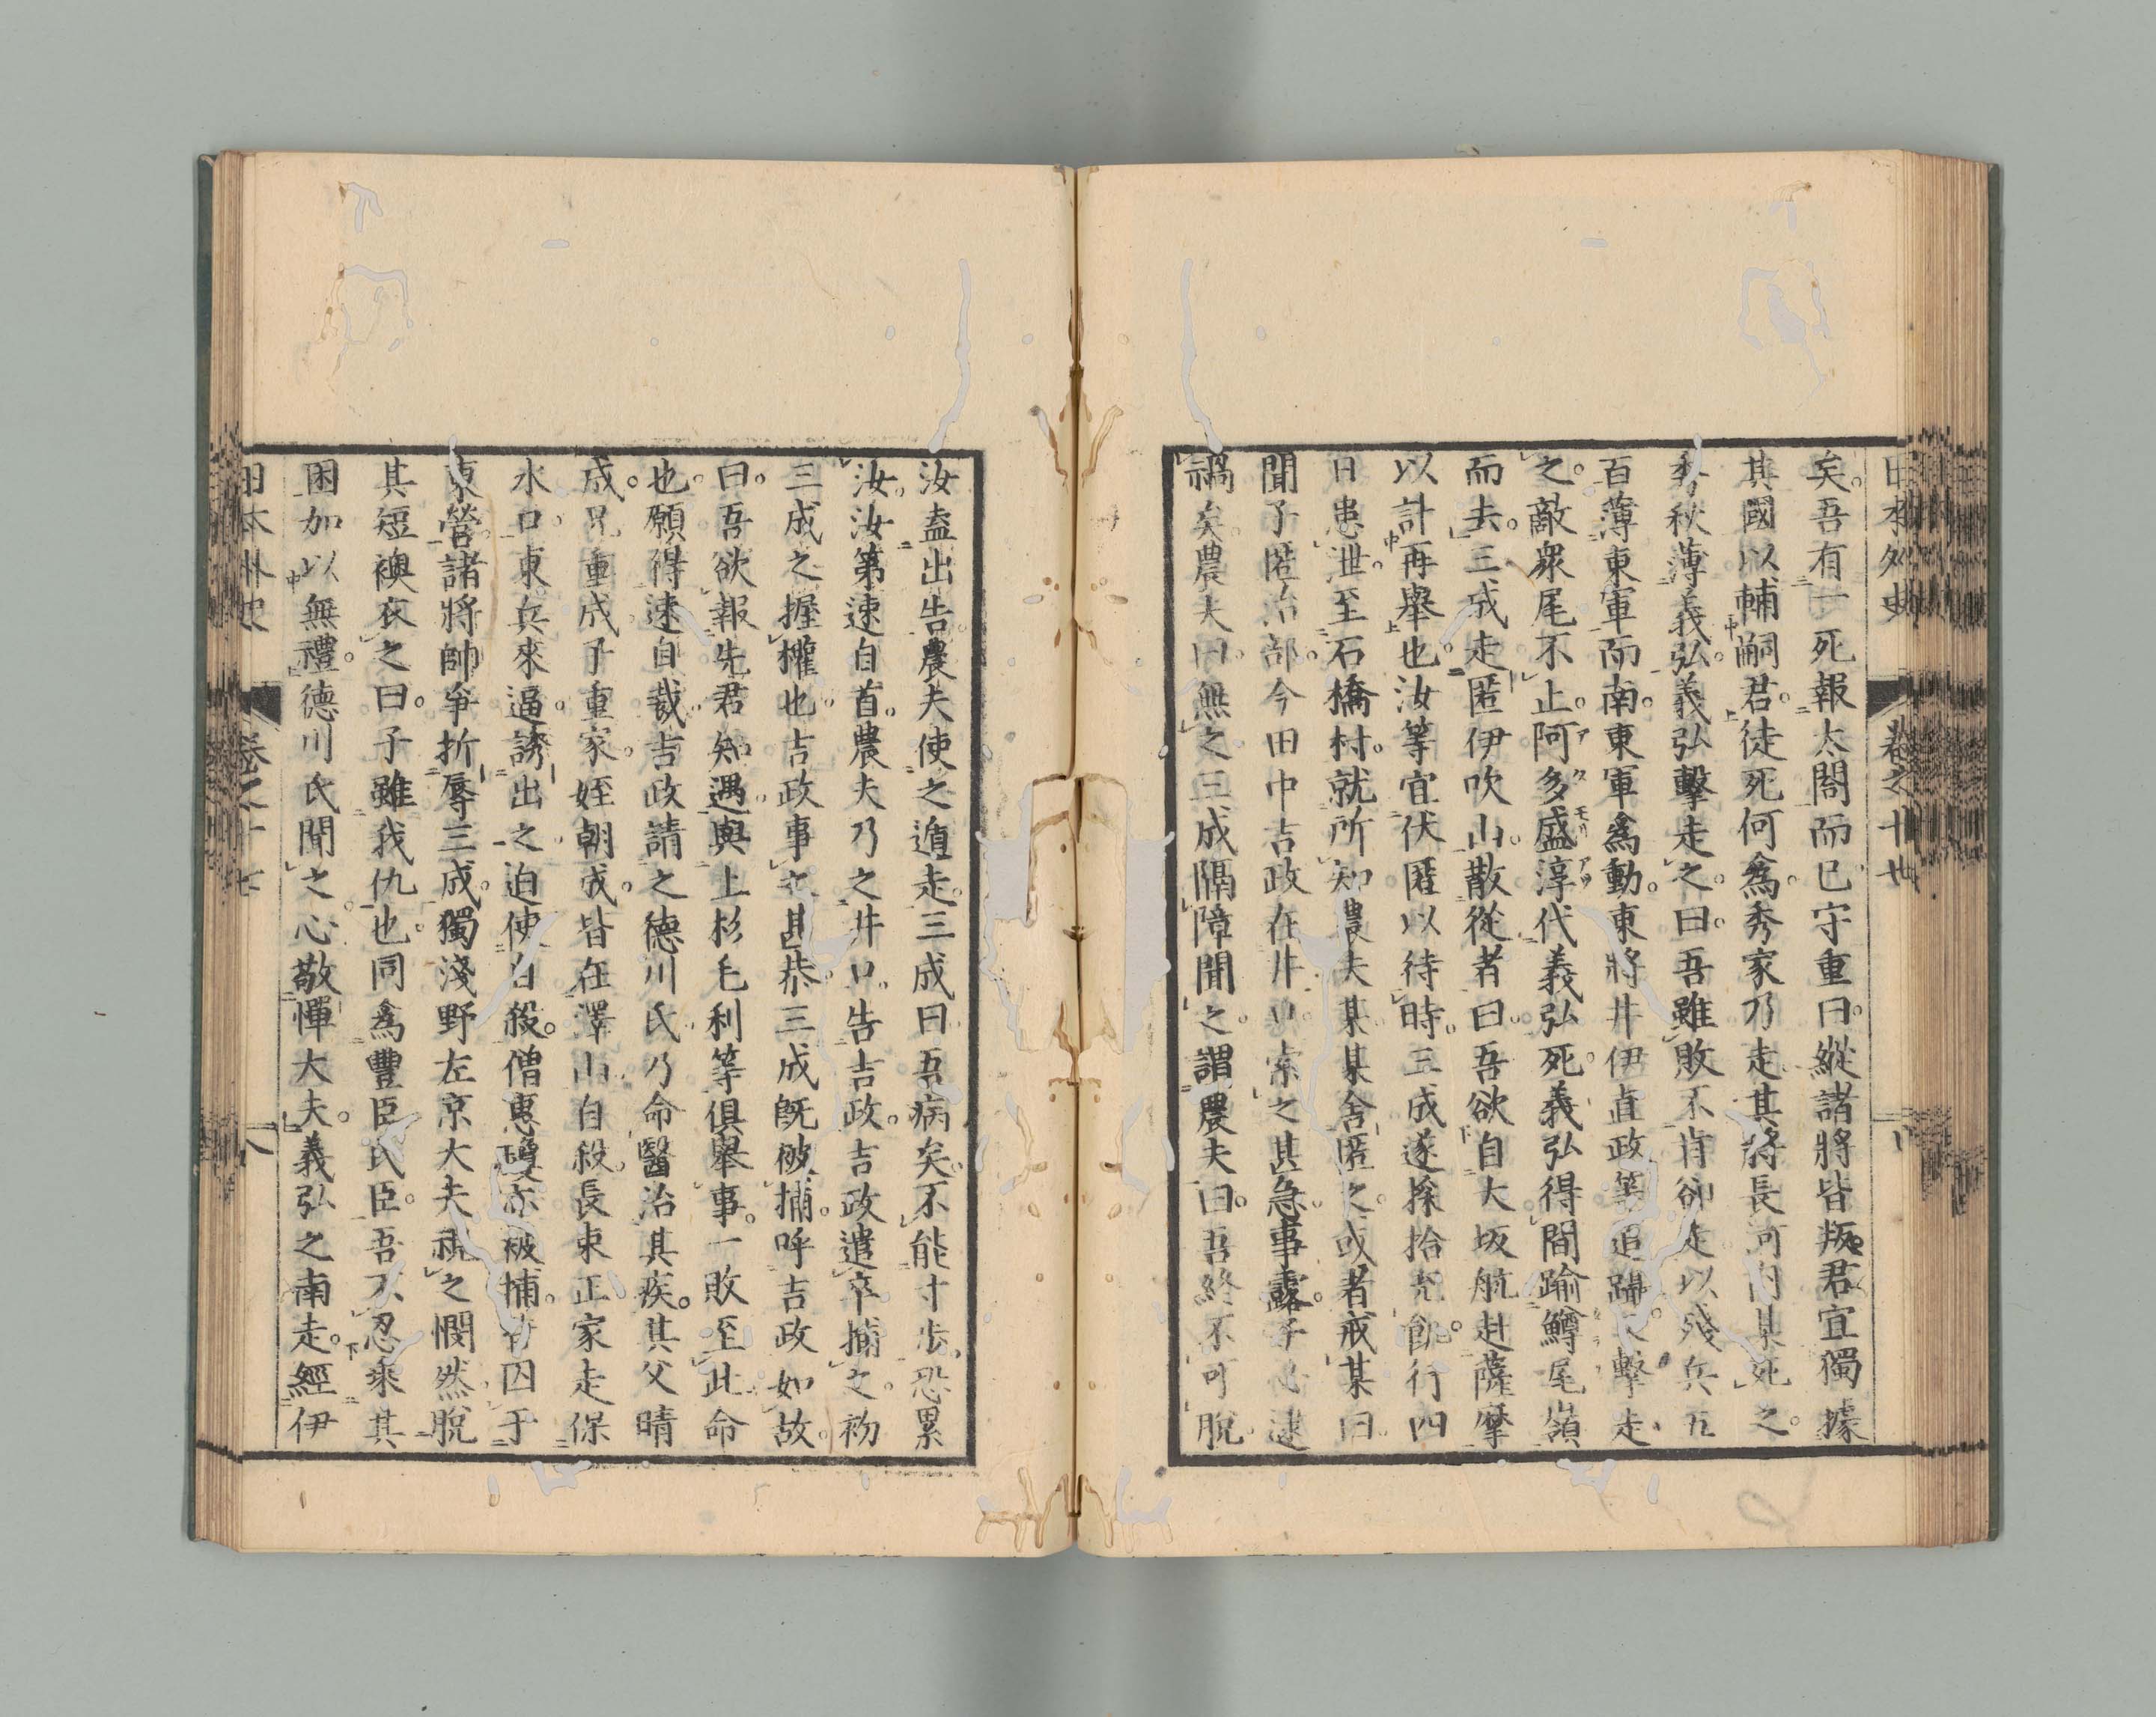 日本外史
卷之十七
矣。吾有一死報太閤而已。守重曰。縱諸將皆叛。君宜獨據
其國以輔嗣君。徒死何爲。秀家乃走。其將長河内某死之。
秀秋薄義弘。義弘擊走之。曰。吾雖敗不肯卻走。以殘兵五
百薄東軍而南。東軍爲動。東將井伊直政等追躡。反擊走
之。敵衆尾不止。阿多盛淳代義弘死。義弘得間踰鱒尾嶺
而去。三成走匿伊吹山。散從者曰。吾欲自大坂航赴薩摩
以計再舉也。汝等宜伏匿以待時。三成遂採拾充飢。行四
日患泄。至石橋村。就所知農夫某。某舍匿之。或者戒某曰。
聞子匿治部。今田中吉政在井口。索之甚急。事露。子必逮
禍矣。農夫曰。無之。三成隔障聞之。謂農夫曰。吾終不可脫。
汝盍出告。農夫使之遁走。三成曰。吾病矣。不能寸步。恐累
汝。汝第速自首。農夫乃之井口。告吉政。吉政遣卒捕之。初
三成之握權也。吉政事之甚恭。三成既被捕。呼吉政如故。
曰。吾欲報先君知遇。與上杉毛利等俱舉事。一敗至此命
也。願得速自裁。吉政請之德川氏。乃命醫治其疾。其父晴
成。兄重成。子重家。姪朝成。皆在澤山自殺。長束正家走保
水口。東兵來逼。誘出之。迫使自殺。僧惠瓊亦被捕。皆囚于
東營。諸將帥爭折辱三成。獨淺野左京大夫視之憫然。脫
其短襖衣之。曰。子雖我仇也。同爲豐臣氏臣。吾不忍乘其
困加以無禮。德川氏聞之。心敬憚大夫。義弘之南走。經伊
日本外史
卷之十七
八